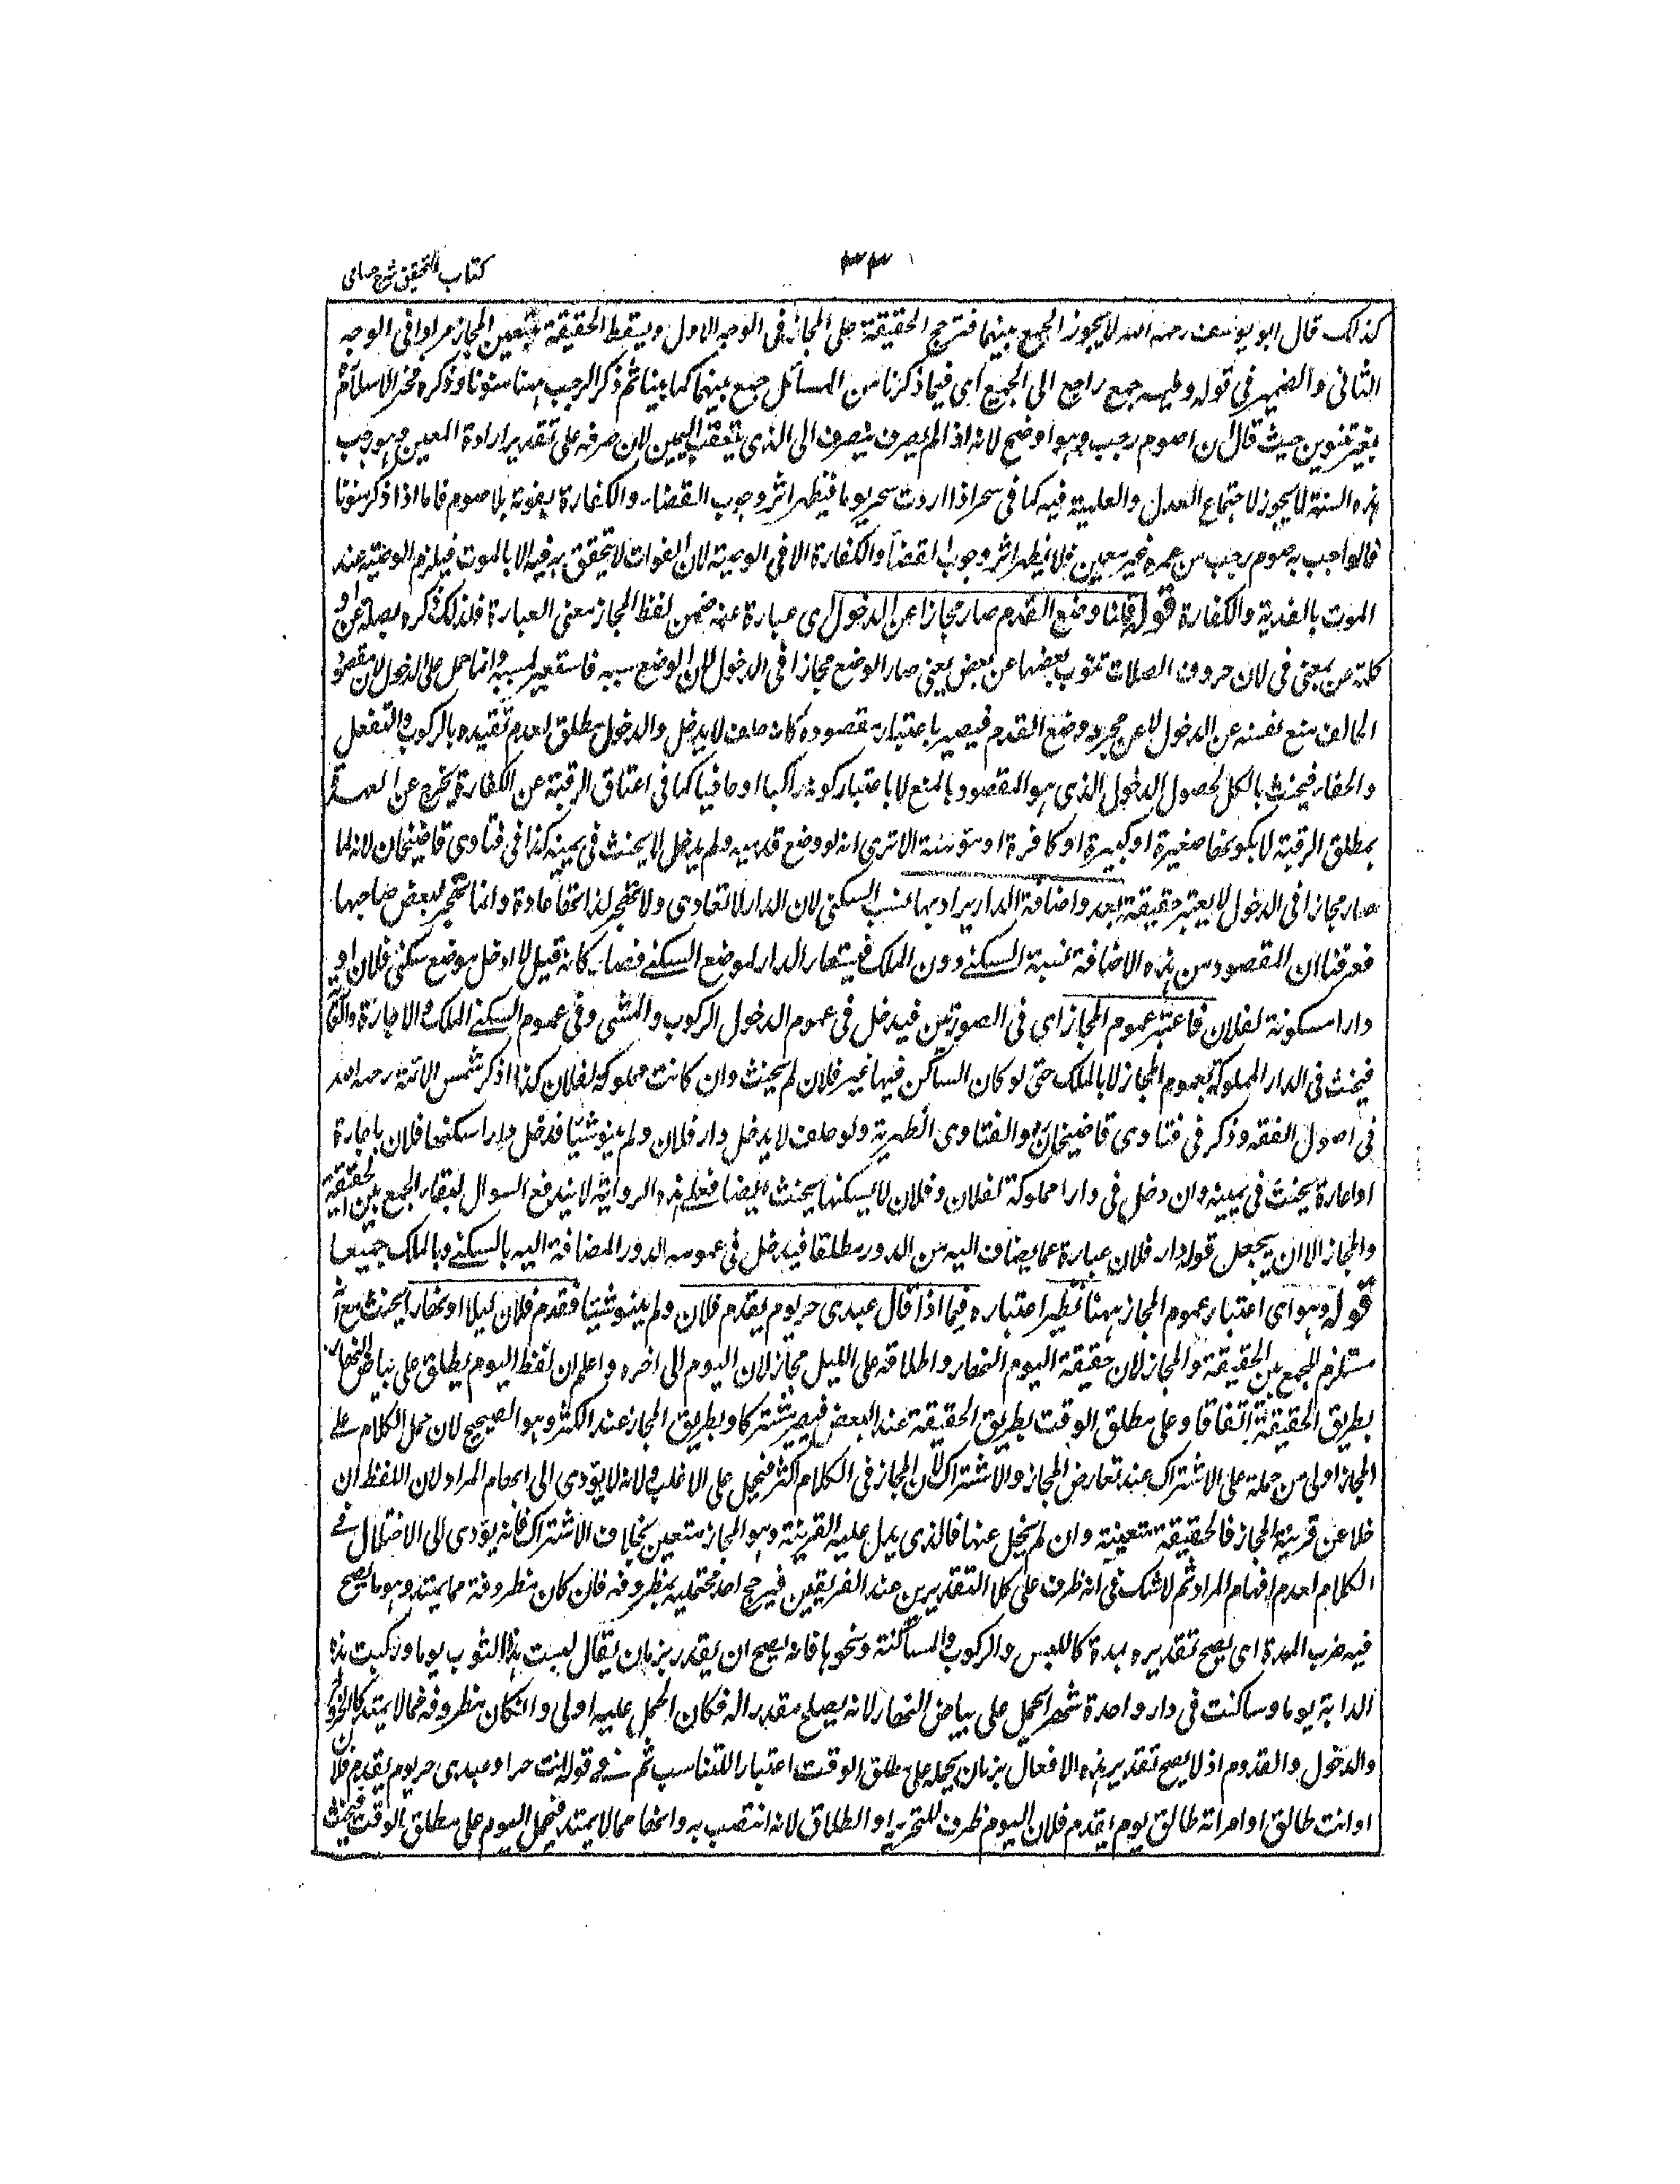 كتاب التحقيق شرح حسامى
٣٣
كذلك قال ابو يوسف رحمه الله لا يجوز الجمع بينهما فترجح الحقيقة على المجاز فى الوجه الاول ويسقط الحقيقة بتعين المجاز مرادا فى الوجه
الثانى والضمير فى قوله وفيه جمع راجع الى الجميع اى فيما ذكرنا من المسائل جمع بينهما كما بينا ثم ذكر الرجب ههنا منونا وذكره فخر الاسلام
بغير تنوين حيث قال ان اصوم رجب وهو اوضح لانه اذا لم يصرف ينصرف الى الذى يتعقب اليمين لان صرفه على تقدير ارادة المعين وهو رجب
هذه السنة لا يجوز لاجتماع العدل والعلمية فيه كما فى سحر اذا اردت سحر يوما فيظهر اثر وجوب القضاء والكفارة بفوته بلا صوم فاما اذا ذكر منونا
فالواجب به صوم رجب من عمره غير معين فلا يظهر اثر وجوب القضاء والكفارة الا فى الوصية لان الفوات لا يتحقق به فيه الا بالموت فيلزم الوصية عند
الموت بالفدية والكفارة قوله قلنا وضع القدم صار مجازا عن الدخول اى عبارة عنه ضمن لفظ المجاز معنى العبارة فلذلك ذكره بصلة عن او
كلمة عن بمعنى فى لان حروف الصلات تنوب بعضها عن بعض يعنى صار الوضع مجازا فى الدخول لان الوضع سببه فاستعير لمسببه وانما حمل على الدخول لان مقصود
الحالف منع نفسه عن الدخول لا عن مجرد وضع القدم فيصير باعتبار مقصوده كانه حلف لا يدخل والدخول مطلق لعدم تقيده بالركوب والتنعل
والحفاء فيحنث بالكل لحصول الدخول الذى هو المقصود بالمنع لا باعتبار كونه راكبا او حافيا كما فى اعتاق الرقبة عن الكفارة يخرج عن العهدة
بمطلق الرقبة لا بكونها صغيرة او كبيرة او كافرة او مؤمنة الا ترى انه لو وضع قدميه ولم يدخل لا يحنث فى يمينه كذا فى فتاوى قاضيخان لانه لما
صار مجازا فى الدخول لا يعتبر حقيقته بعد واضافة الدار يراد بها نسب السكنى لان الدار لا تعادى ولا تهجر لذاتها عادة وانما تهجر لبغض صاحبها
فعرفنا ان المقصود من هذه الاضافة نسبة السكنے دون الملك فيستعار الدار لموضع السكنے فصار كانه قيل لا ادخل موضع سكنى فلان او
دارا مسكونة لفلان فاعتبر عموم المجاز اى فى الصورتين فيدخل فى عموم الدخول الركوب والمشى وفى عموم السكنے الملك والاجارة والعارية
فيحنث فى الدار المملوكة بعموم المجاز لا بالملك حتى لو كان الساكن فيها غير فلان لم يحنث وان كانت مملوكة لفلان كذا ذكر شمس الائمة رحمه الله
فى اصول الفقه وذكر فى فتاوى قاضيخان والفتاوى الظهيرية ولو حلف لا يدخل دار فلان ولم ينو شيئا فدخل دارا سكنها فلان باجارة
او اعارة يحنث فى يمينه وان دخل فى دار مملوكة لفلان وفلان لا يسكنها يحنث ايضا فعلى هذه الرواية لا يندفع السوال لبقاء الجمع بين الحقيقة
والمجاز الا ان يجعل قوله دار فلان عبارة عما يضاف اليه من الدور مطلقا فيدخل فى عمومه الدور المضافة اليه بالسكنے وبالملك جميعا
قوله وهو اى اعتبار عموم المجاز ههنا نظير اعتباره فيما اذا قال عبدى حر يوم يقدم فلان ولم ينو شيئا فقدم فلان ليلا او نهارا يحنث مع انه
مستلزم للجمع بين الحقيقة والمجاز لان حقيقة اليوم النهار واطلاقه على الليل مجاز لان اليوم الى اخره واعلم ان لفظ اليوم يطلق على بياض النهار
بطريق الحقيقة اتفاقا وعلى مطلق الوقت بطريق الحقيقة عند البعض فيصير مشتركا وبطريق المجاز عند الاكثر وهو الصحيح لان حمل الكلام على
المجاز اولى من حمله على الاشتراك عند تعارض المجاز والاشتراك لان المجاز فى الكلام اكثر فيحمل على الاغلب ولانه لا يؤدى الى ابهام المراد لان اللفظ ان
خلا عن قرينة المجاز فالحقيقة متعينة وان لم يخل عنها فالذى يدل عليه القرينة وهو المجاز متعين بخلاف الاشتراك فانه يؤدى الى الاختلال فے
الكلام لعدم افهام المراد ثم لا شك فى انه ظرف على كلا التقديرين عند الفريقين فيرجح احد محتمليه بمظروفه فان كان مظروفه مما يمتد وهو ما يصح
فيه ضرب المدة اى يصح تقديره بمدة كاللبس والركوب والمساكنة ونحوها فانه يصح ان يقدر بزمان يقال لبست هذا الثوب يوما وركبت هذه
الدابة يوما وساكنت فى دار واحدة شهرا يحمل على بياض النهار لانه يصلح مقدرا له فكان الحمل عليه اولى وان كان مظروفه مما لا يمتد كالخروج
والدخول والقدوم اذ لا يصح تقدير هذه الافعال بزمان يحمل على مطلق الوقت اعتبارا للتناسب ثم فے قوله انت حر او عبدى حر يوم يقدم فلان
او انت طالق او امراته طالق يوم يقدم فلان اليوم ظرف للتحرير او الطلاق لانه انتصب به وانهما مما لا يمتد فيحمل اليوم على مطلق الوقت فيحنث